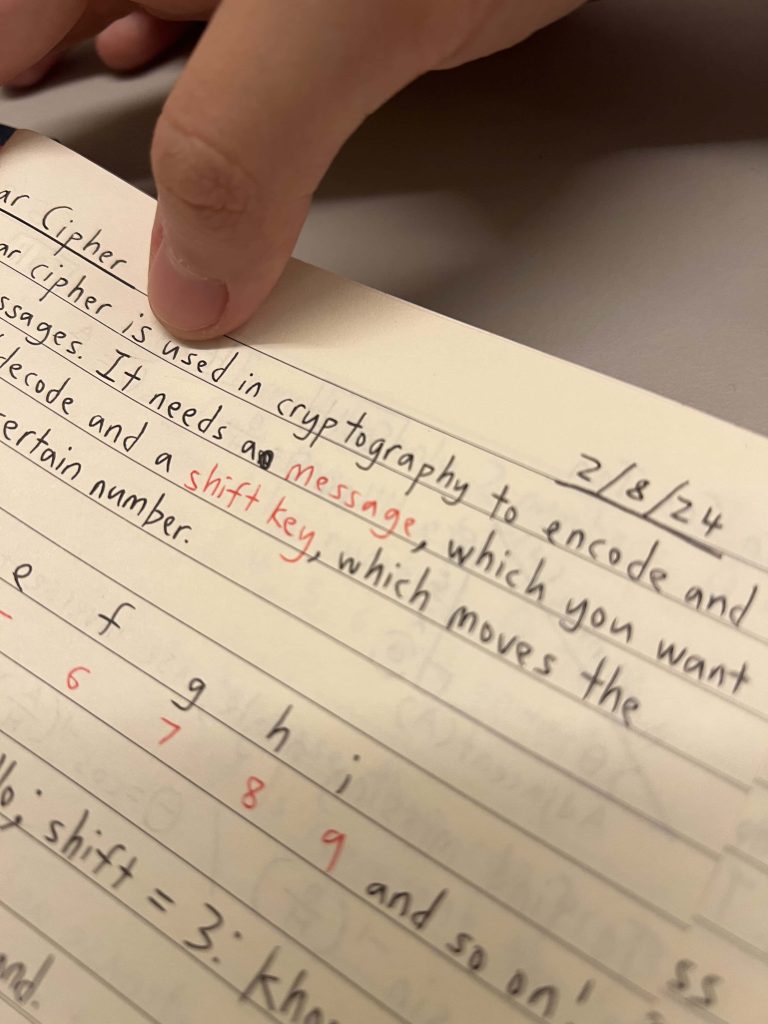 ar Cipher
2/8/24
ar cipher is used in cryptography to encode and
ssages. It needs a message, which you want
decode and a shift key, which moves the
ertain number.
e f g h i
6 7 8 9 and so on!
llo; shift = 3: kho
ss
and.